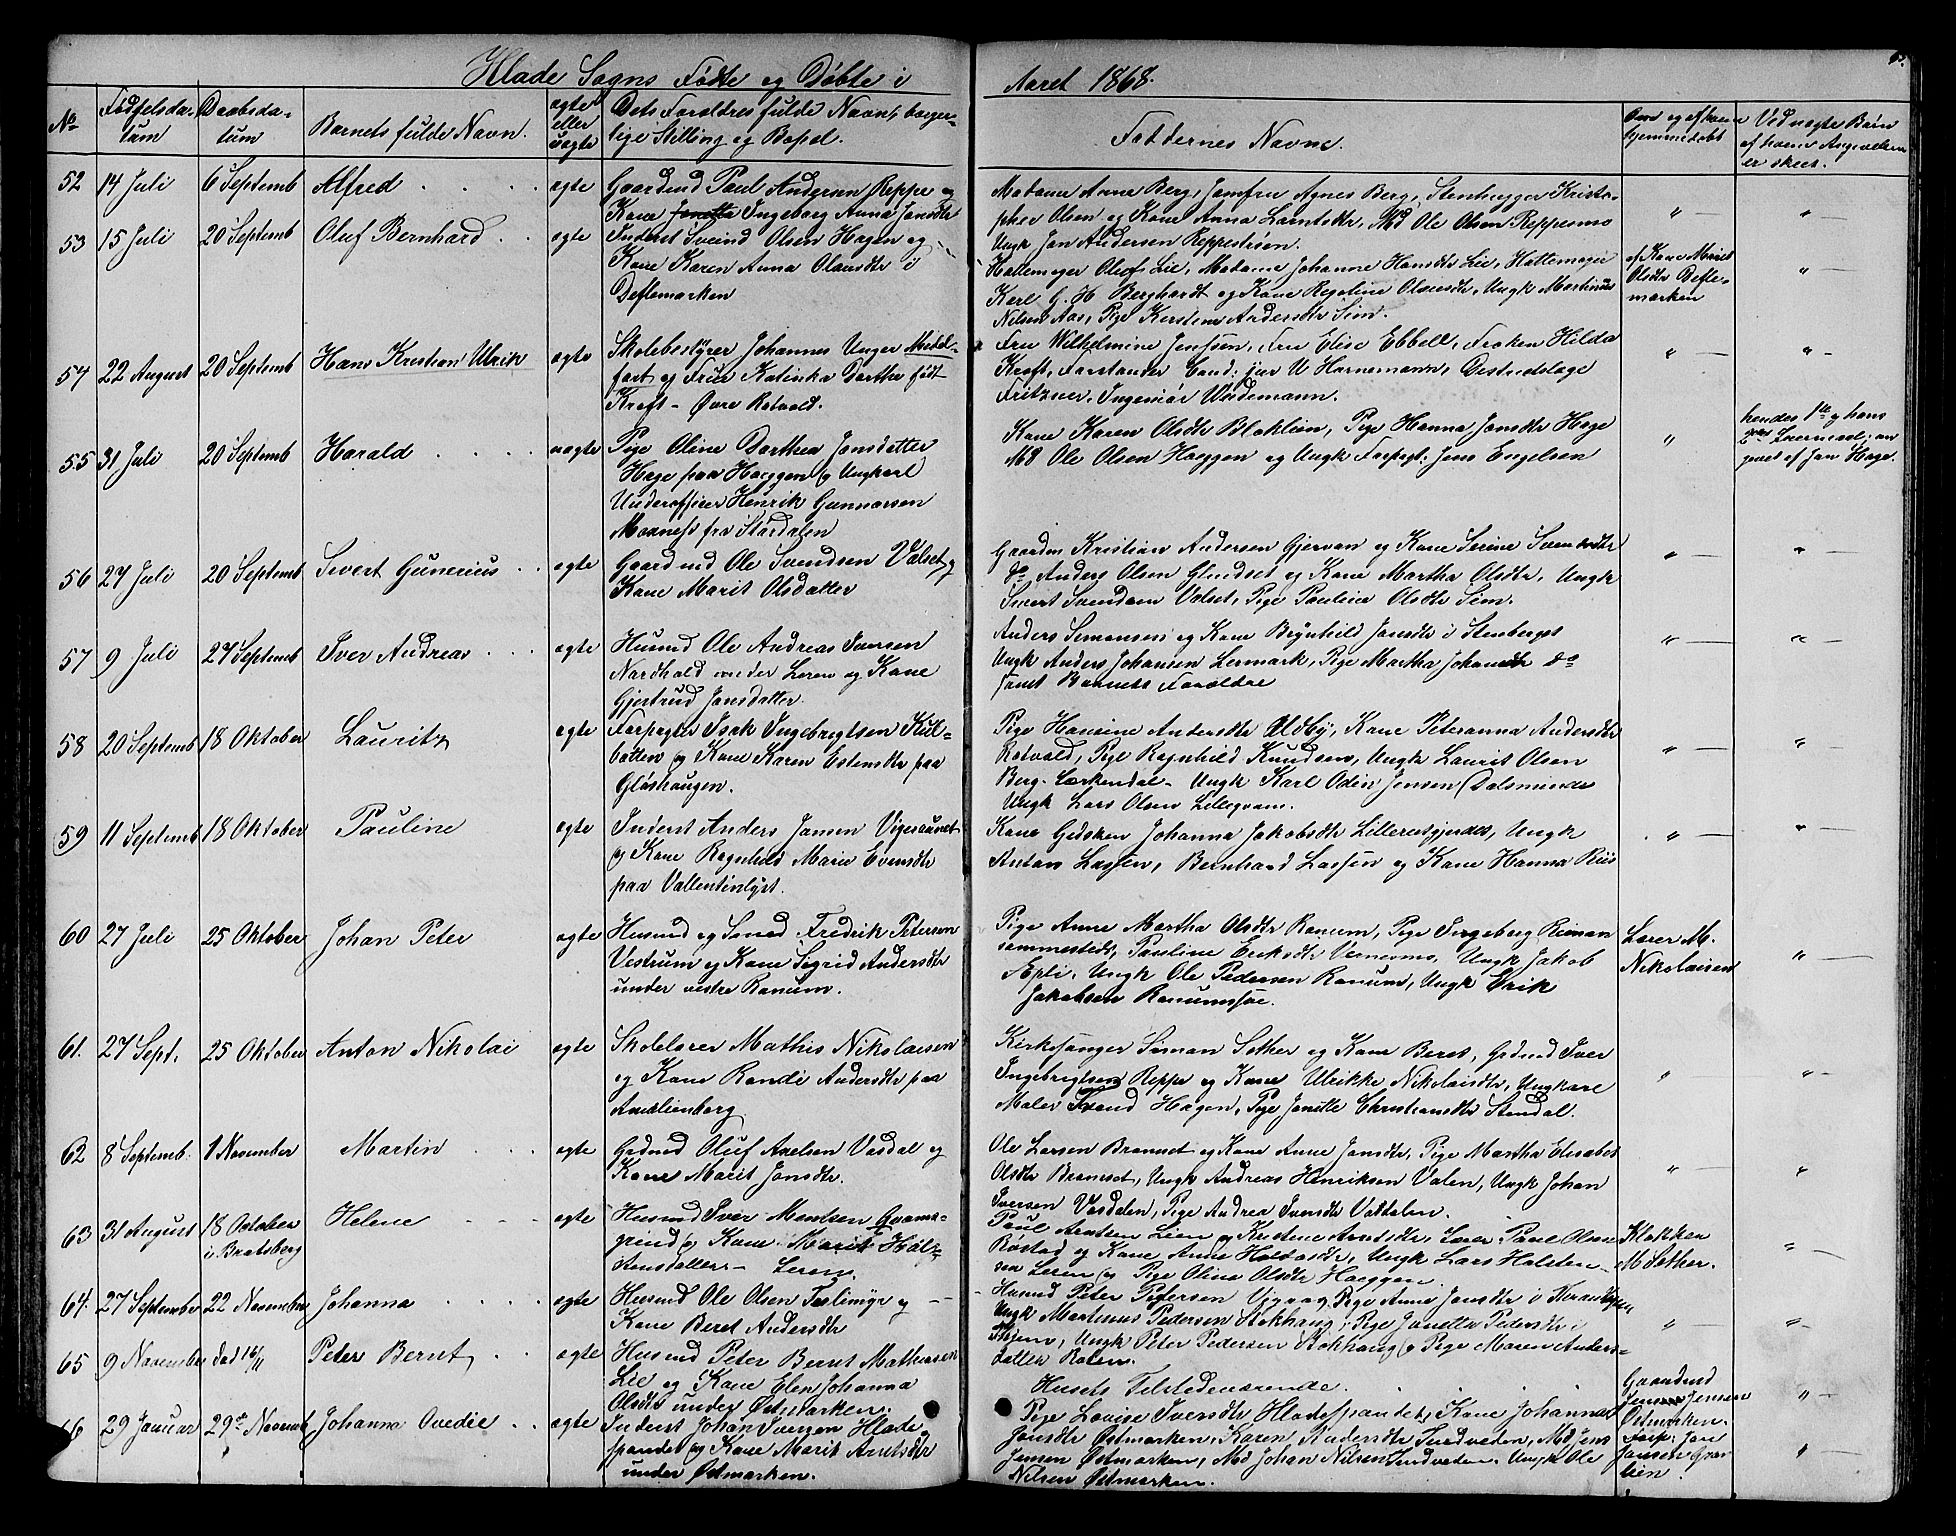 Hlade Sogns Fødte og Døbte i Aaret 1868.
No Fødselsdatum Daabsdatum Barnets fulde Navn. ægte eller uægte Dets Forældres fulde Navn, borgerlige Stilling og Bopel. Faddernes Navne. Om og af hvem hjemmedøbt Ved uægte Børn af hvem Angivelsen er skeet.
52 14 Juli 6 Septemb Alfred ægte Gaardmd Paul Andersen Reppe og
Kone Ingeborg Anna Jonsdtr
Madame Anne Berg, Jomfru Agnes Berg, Stenhugger Kristo-
pher Olsen og Kone Anna Larntsdtr, Md Ole Olsen Reppesmo
Ungk Jon Andersen Reppestrøen.
53 15 Juli 20 Septemb Oluf Bernhard ægte Inderst Sveind Olsen Hagen og
Kone Karen Anna Olausdtr i
Deflemarken
Hattemager Oluf Lie, Madame Johanne Hansdtr Lie, Hattemager
Karl G. H Berghardt og Kone Regeline Olausdtr, Ungk Martinus
Nilsen Aas, Pige Kirstine Andersdtr Sim.
af Kone Marit
Olsdtr Defle-
marken
54 22 August 20 Septemb Hans Kristian Ulrik ægte Skolebestyrer Johannes Unger Midel-
fart og Frue Katinka Dorthea født
Kraft - Øvre Rotvold.
Fru Wilhelmine Jenssen, Fru Elise Ebbell, Frøken Hilda
Kraft, Forstander Cand: jur W Hornemann, Distriktslæge
Fritzner, Ingeniør Weidemann.
55 31 Juli 20 Septemb Harald uægte Pige Oline Dorthea Jonsdatter
Hage paa Hoeggen og Ungkarl
Underofficer Henrik Gunnarsen
Moxness fra Stördalen
Kone Karen Olsdtr Bloklien, Pige Hanna Jonsdtr Hage
Md Ole Olsen Hoeggen og Ungk Forpagt: Jens Engelsen
hendes 1ste og hans
Leiermaal; an
givet af Jon Hage.
56 27 Juli 20 Septemb Sivert Gunerius ægte Gaardmd Ole Svendsen Valset og
Kone Marit Olsdatter
Gaardm Kristian Andersen Gjervan og Kone Serine Svendsdtr
do Anders Olsen Glindset og Kone Martha Olsdtr, Ungk
Sivert Svendsen Valset, Pige Pauline Olsdtr Sim.
57 9 Juli 27 Septemb Iver Andreas ægte Husmd Ole Andreas Iversen
Nordhald under Leren og Kone
Gjertrud Jonsdatter.
Anders Simonsen og Kone Brynhild Jonsdtr i Stenberget
Ungk Anders Johansen Lermark, Pige Martha Johansdtr do
samt Barnets Forældre
58 20 Septemb 18 Oktober Lauritz ægte Forpagter Isak Ingebrigtsen Kul-
batten og Kone Karen Estensdtr paa
Gløshaugen.
Pige Hansine Andersdtr Oldby, Kone Peteranna Andersdtr
Rotvold, Pige Ragnhild Knudsen, Ungk Laurit Olsen
Berg. Lerkendal - Ungk Karl Odin Jensen Dalsminde
Ungk Lars Olsen Lillegvam.
59 11 Septemb 18 Oktober Pauline ægte Inderst Anders Jonsen Vigesaunet
og Kone Ragnhild Marie Evensdtr
paa Vallentinlyst.
Kone Gidsken Johanna Jakobsdtr Lilleresgjerdet, Ungk
Anton Lassen, Bernhard Lassen og Kone Hanna Riis
60 27 Juli 25 Oktober Johan Peter ægte Husmd og Smed Fredrik Petersen
Vestrum og Kone Sigrid Andersdtr
under vestre Ranum.
Pige Anne Martha Olsdtr Ranum, Pige Ingeborg Reinan
sammesteds, Pauline Eriksdtr Værnæsmo, Ungk Jakob
Æpli, Ungk Ole Pedersen Ranum, Ungk Erik
Jakobsen Ranumsøe.
Lærer M.
Nikolaisen
61. 27 Sept. 25 Oktober Anton Nikolai ægte Skolelærer Mathis Nikolaisen
og Kone Randi Andersdtr paa
Amalienborg
Kirkesanger Simon Sether og Kone Beret, Grdmd Iver
Ingebrigtsen Reppe og Kone Ulrikke Nikolaisdtr, Ungkarl
Maler Svend Hagen, Pige Janette Christiansdtr Stendal.
62 8 Septemb. 1 November Martin ægte Grdmd Oluf Axelsen Vasdal og
Kone Marit Jonsdtr.
Ole Larsen Bromset og Kone Anne Jonsdtr, Pige Martha Elisabet
Olsdtr Bromset, Ungk Andreas Henriksen Valen, Ungk Johan
Iversen Vasdalen, Pige Andrea Ivensdtr Vatdalen.
63 31 August 18 October
i Bratsberg Helene ægte Husmd Iver Montsen Gvams-
grind og Kone Marit Hol-
stensdatter - Leren.
Paul Arntsen Lien og Kristine Arntsdtr, Lærer Paul Olsen
Røstad og Kone Anne Holtasdtr, Ungk Lars Halsten-
sen Leren og Pige Oline Olsdtr Hoeggen
Klokker
M Sether.
64. 27 September 22 November Johanna ægte Husmd Ole Olsen Teslimyr og
Kone Beret Andersdtr
Husmd Peter Pedersen Vigvag, Pige Anne Jonsdtr i
Ungk Martinus Pedersen Stokhaug, Pige Janetta Pedersdtr i
65 9 November død 16/11 Peter Bernt ægte Husmd Peter Bernt Mathiasen
Lie og Kone Elen Johanna
Olsdtr under Østmarken.
Stjern, Ungk Peter Pedersen Stokhaug og Pige Maren Anders-
datter Rotem.
Husets Tilstedeværende.
Gaardmd
Jens Jensen
Østmarken.
66 29 Januar 29de Novemb Johanna Ovedie ægte Inderst Johan Svergen Hlade-
spandet og Kone Marit Arntsdtr
under Østmarken.
Pige Lovise Iversdtr Hladespandet, Kone Johanna
Jonsdtr Østmarken, Karen Andersdtr Sundveden, Md Jens
Jensen Østmarken, Md Johan Nilsen Sundveden, Ungk Ole
Nilsen Østmarken.
Forp: Jon
Jonsen Gran-
lien